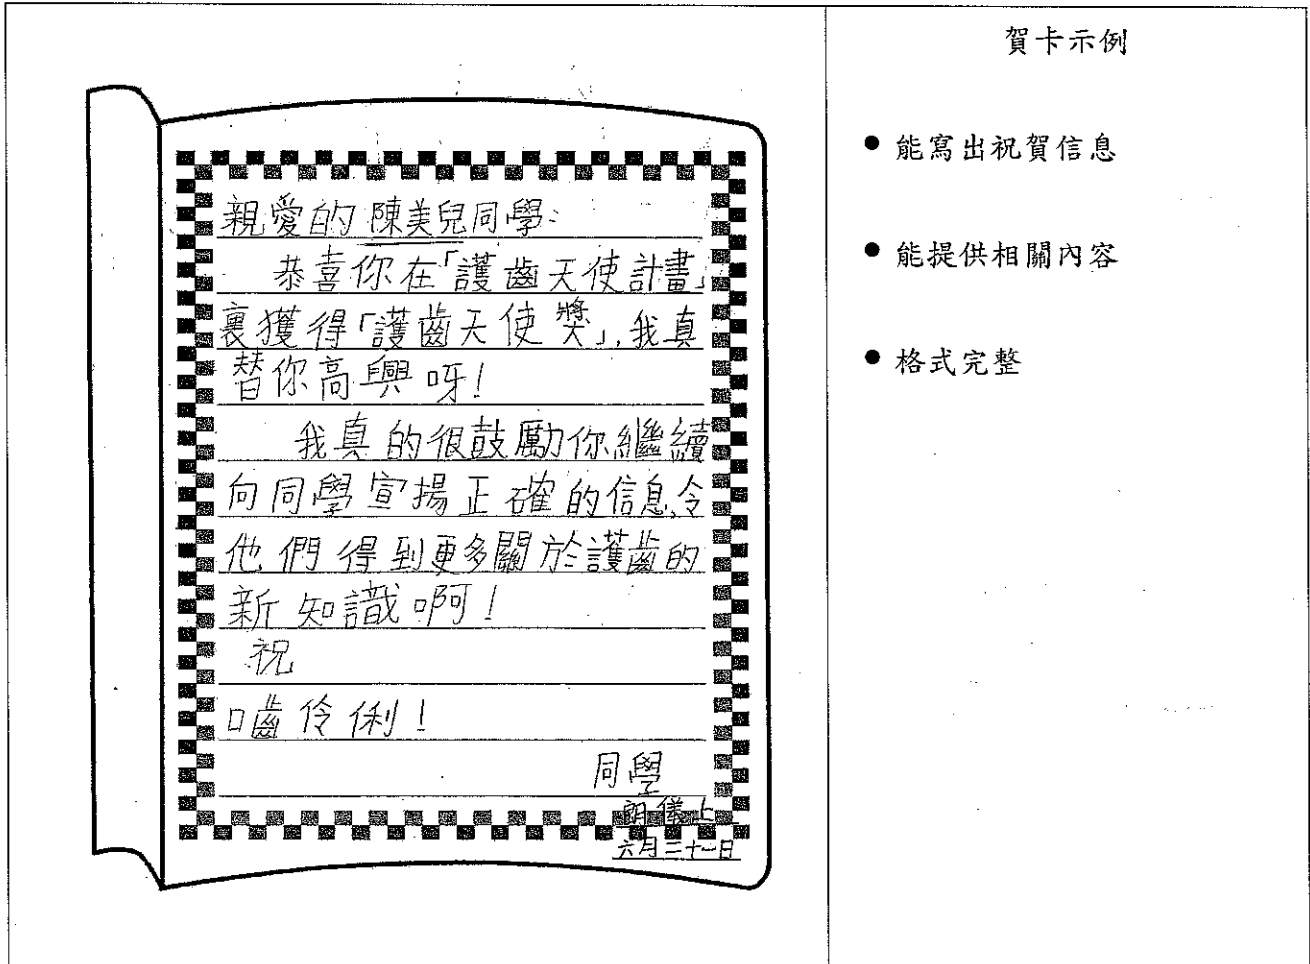 親愛的陳美兒同學：
恭喜你在「護齒天使計畫」
裏獲得「護齒天使獎」，我真
替你高興呀！
我真的很鼓勵你繼續
向同學宣揚正確的信息，令
他們得到更多關於護齒的
新知識啊！
祝
口齒伶俐！
同學
朗儀上
六月二十一日
賀卡示例
● 能寫出祝賀信息
● 能提供相關內容
● 格式完整